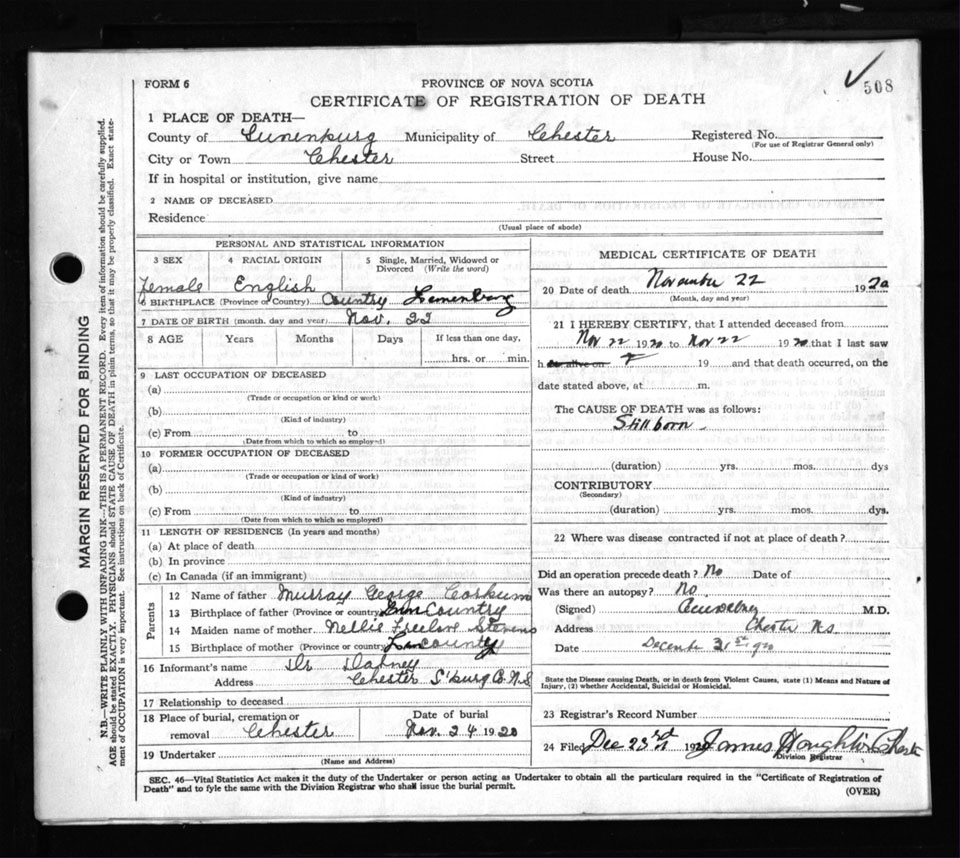 508
FORM 6
PROVINCE OF NOVA SCOTIA
CERTIFICATE OF REGISTRATION OF DEATH
1 PLACE OF DEATH—
County of Lunenburg Municipality of Chester Registered No.
(For use of Registrar General only)
City or Town Chester Street House No.
If in hospital or institution, give name
2 NAME OF DECEASED
Residence
(Usual place of abode)
PERSONAL AND STATISTICAL INFORMATION
3 SEX 4 RACIAL ORIGIN 5 Single, Married, Widowed or Divorced (Write the word)
Female English
6 BIRTHPLACE (Province or Country) Country Lunenburg
7 DATE OF BIRTH (month, day and year) Nov. 22
8 AGE Years Months Days If less than one day,
hrs. or min.
9 LAST OCCUPATION OF DECEASED
(a)
(Trade or occupation or kind or work)
(b)
(Kind of industry)
(c) From to
(Date from which to which so employed)
10 FORMER OCCUPATION OF DECEASED
(a)
(Trade or occupation or kind of work)
(b)
(Kind of industry)
(c) From to
(Date from which to which so employed)
11 LENGTH OF RESIDENCE (In years and months)
(a) At place of death
(b) In province
(c) In Canada (if an immigrant)
Parents
12 Name of father Murray George Corkum
13 Birthplace of father (Province or country) Lun Country
14 Maiden name of mother Nellie Freelove Stevens
15 Birthplace of mother (Province or country) Lun County
16 Informant's name Dr
Address Chester L'burg Co. N.S
17 Relationship to deceased
18 Place of burial, cremation or removal Chester Date of burial Nov. 24 1920
19 Undertaker
(Name and Address)
MEDICAL CERTIFICATE OF DEATH
20 Date of death November 22 1920
(Month, day and year)
21 I HEREBY CERTIFY, that I attended deceased from
Nov 22 1920 to Nov 22 1920 that I last saw
h 19 and that death occurred, on the
date stated above, at m.
The CAUSE OF DEATH was as follows:
Still born
(duration) yrs. mos. dys
CONTRIBUTORY
(Secondary)
(duration) yrs. mos. dys.
22 Where was disease contracted if not at place of death?
Did an operation precede death? No Date of
Was there an autopsy? No.
(Signed) M.D.
Address Chester N.S
Date December 31st
State the Disease causing Death, or in death from Violent Causes, state (1) Means and Nature of
Injury, (2) whether Accidental, Suicidal or Homicidal.
23 Registrar's Record Number
24 Filed Dec 23rd 192 James Houghton Chester
Division Registrar
SEC. 46—Vital Statistics Act makes it the duty of the Undertaker or person acting as Undertaker to obtain all the particulars required in the "Certificate of Registration of
Death" and to fyle the same with the Division Registrar who shall issue the burial permit.
(OVER)
MARGIN RESERVED FOR BINDING
N.B.—WRITE PLAINLY WITH UNFADING INK—THIS IS A PERMANENT RECORD. Every item of information should be carefully supplied.
AGE should be stated EXACTLY. PHYSICIANS should STATE CAUSE OF DEATH in plain terms, so that it may be properly classified. Exact state-
ment of OCCUPATION is very important. See instructions on back of Certificate.